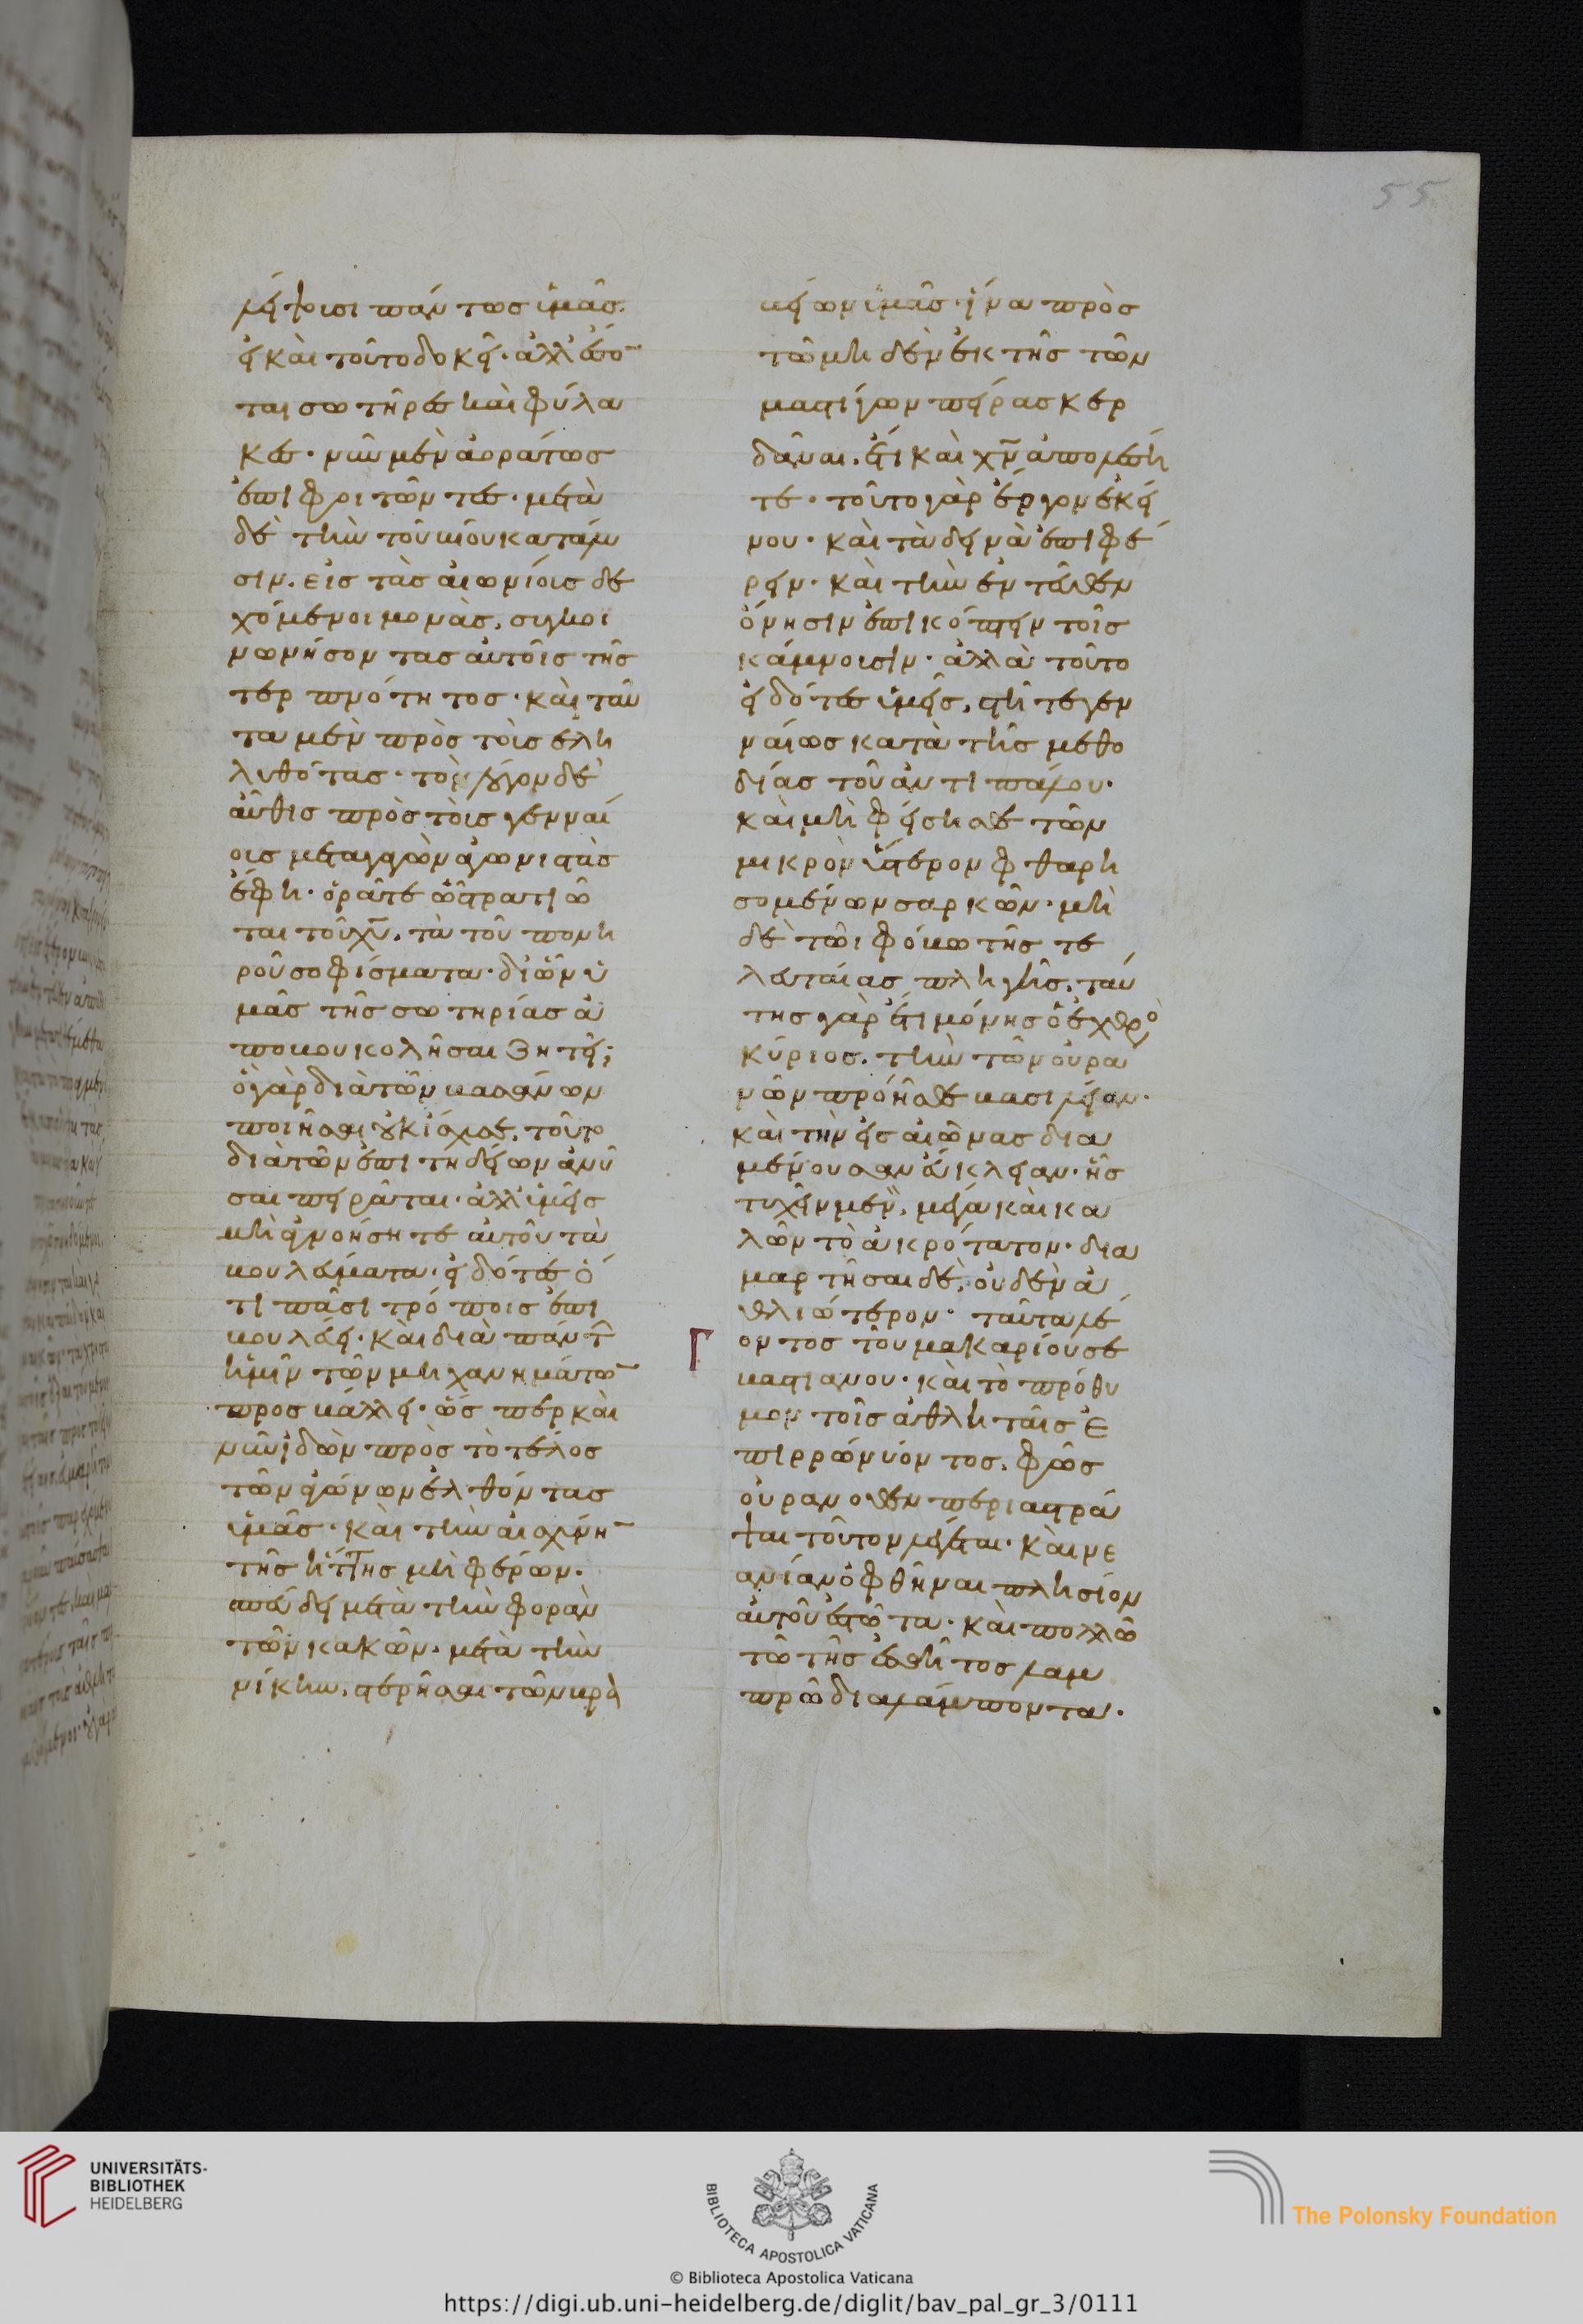 λείψουσι πάντως ὑμᾶς·
εἰ καὶ τοῦτο δοκεῖ· ἀλλ' ἕπο̅
ται σωτῆρες καὶ φύλα
κες· νῦν μὲν ἀοράτως
ἐπιφοιτῶντες· μετὰ
δὲ τὴν τοῦ βίου κατάλυ
σιν. εἰς τὰς αἰωνίους δε
χόμενοι μονὰς, συγκοι
νωνήσοντας αὐτοῖς τῆς
τερπνότητος· καὶ ταῦ
τα μὲν πρὸς τοὺς ἐλη
λυθότας· τὸν λόγον δὲ
αὖθις πρὸς τοὺς γενναί
ους μεταγαγὼν ἀγωνιστὰς
ἔφη· ὁρᾶτε ὦ στρατιῶ
ται τοῦ χ̅υ̅, τὰ τοῦ πονη
ροῦ σοφίσματα· δι' ὧν ὑ
μᾶς τῆς σωτηρίας ἀ
ποβουκολῆσαι ζητεῖ;
ὃ γὰρ διὰ τῶν βασάνων
ποιῆσαι οὐκ ἴσχυσε, τοῦτο
διὰ τῶν ἐπιτηδείων ἀνύ
σαι πειρᾶται· ἀλλ' ὑμεῖς
μὴ ἀγνοήσητε αὐτοῦ τὰ
βουλεύματα· εἰδότες ὅ
τι πᾶσι τρόποις ἐπι
βουλεύει· καὶ διὰ πάντ̅
ἡμῖν τῶν μηχανημάτω̅
προσβάλλει· ὥσπερ καὶ
νῦν ἰδὼν πρὸς τὸ τέλος
τῶν ἀγώνων ἐλθόντας
ὑμᾶς· καὶ τὴν αἰσχύνη̅
τῆς ἥττης μὴ φέρων·
σπεύδει μετὰ τὴν φορὰν
τῶν κακῶν· μετὰ τὴν
νίκην, στερῆσαι τῶν βρα
55
βείων ὑμᾶς· ἵνα πρὸς
τῶ μηδὲν ἐκ τῆς τῶν
μαστίγων πείρας κερ
δᾶναι, ἔτι καὶ χ̅ν̅ ἀπολέση
τε· τοῦτο γὰρ ἔργον ἐκεί
νου· καὶ τὰ δεινὰ ἐπιφέ
ρειν· καὶ τὴν ἐντεῦθεν
ὄνησιν ἐπικόπτειν τοῖς
κάμνουσιν· ἀλλὰ τοῦτο
εἰδότες ὑμεῖς, στῆτε γεν
ναίως κατὰ τῆς μεθο
δίας τοῦ ἀντιπάλου·
καὶ μὴ φείσησθε τῶν
μικρὸν ὕστερον φθαρη
σομένων σαρκῶν· μὴ
δὲ τῶι φόβω τῆς τε
λευταίας πληγῆς, ταύ
της γὰρ ἔτι μόνης ὁ ἐχθρὸς
κύριος. τὴν τῶν οὐρα
νῶν πρόησθε βασιλείαν·
καὶ τὴν εἰς αἰῶνας δια
μένουσαν εὔκλειαν· ἧς
τυχεῖν μὲν, μέγα καὶ κα
λῶν τὸ ἀκρότατον· δια
μαρτῆσαι δὲ, οὐδὲν ἀ
θλιώτερον· ταῦτα λέ
Γοντος τοῦ μακαρίου σε
βαστιανου· καὶ τὸ πρόθυ
μον τοῖς ἀθληταῖς ἐ
πιρρωννύοντος, φῶς
οὐρανοθεν περιαστρά
ψαι τοῦτον λέγεται· καὶ νε
ανίαν ὀφθῆναι πλησίον
αὐτοῦ ἑστῶτα· καὶ πολλῶ
τῶ τῆς ἐσθῆτος λαμ
πρῶ διαλάμποντα.
UNIVERSITÄTS-
BIBLIOTHEK
HEIDELBERG
BIBLIOTECA APOSTOLICA VATICANA
The Polonsky Foundation
© Biblioteca Apostolica Vaticana
https://digi.ub.uni-heidelberg.de/diglit/bav_pal_gr_3/0111